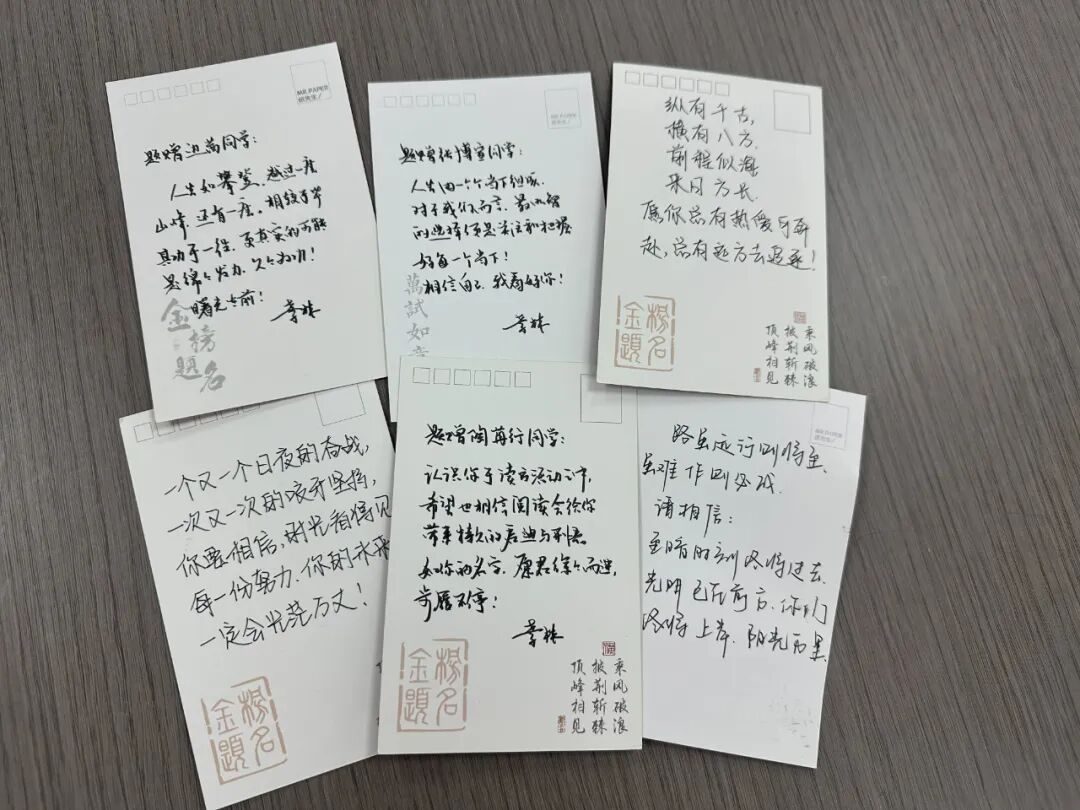 MR.PAPER
题赠迅嵩同学：
人生如攀登，越过一座
山峰，还有一座。相较于毕
其功于一役，更真实的可能
是绵绵发力，久久为功！
曙光在前！
金榜题名
MR.PAPER
题赠张博宣同学：
人生由一个个当下组成，
对于我们而言，最明智
的选择便是关注和把握
好每一个当下！
相信自己，我看好你！
萬試如意
纵有千古，
横有八方，
前程似海
来日方长，
愿你总有热爱可奔
赴，总有远方去追逐！
金榜題名
乘风破浪
披荆斩棘
顶峰相见
一个又一个日夜的奋战，
一次又一次的咬牙坚持，
你要相信，时光看得见
每一份努力，你的未来
一定会光芒万丈！
金榜題名
题赠陶苒行同学：
认识你于读书活动中，
希望也相信阅读会给你
带来持久的启迪与利息
如你的名字，愿君徐徐而进，
步履不停！
金榜題名
乘风破浪
披荆斩棘
顶峰相见
MR.PAPER
路虽远行则将至，
虽难作则必成
请相信：
至暗时刻终将过去，
光明已在前方，你们
终将上岸，阳光万里